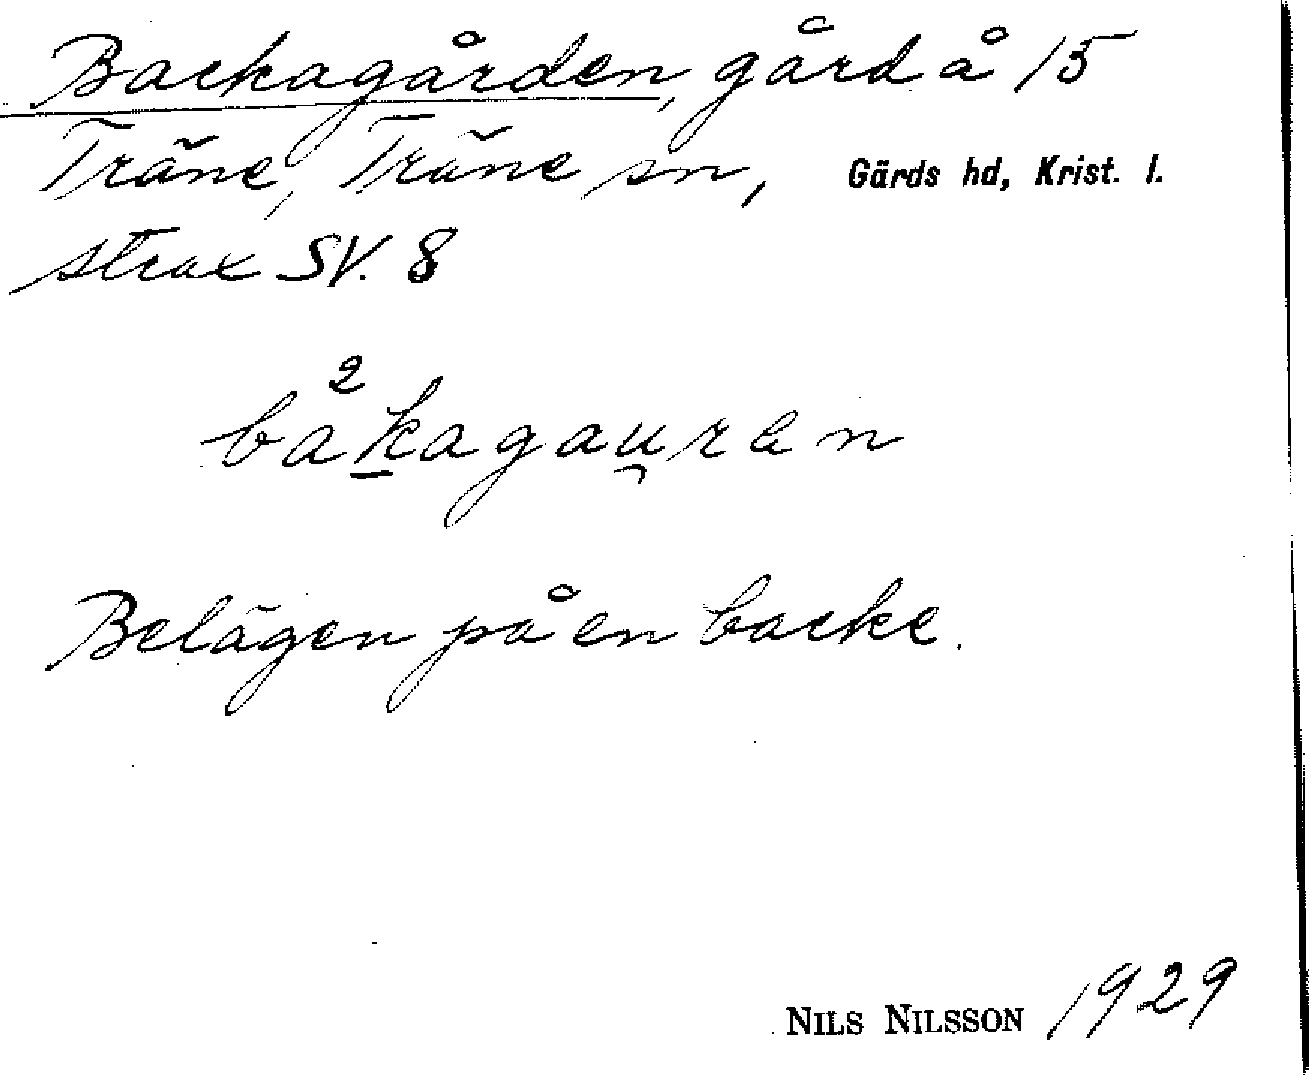 Backagården, gård å 15
Träne, Träne sn, Gärds hd, Krist. l.
strax SV. 8
ba²k̲agau̯ren
Belägen på en backe.
NILS NILSSON 1929